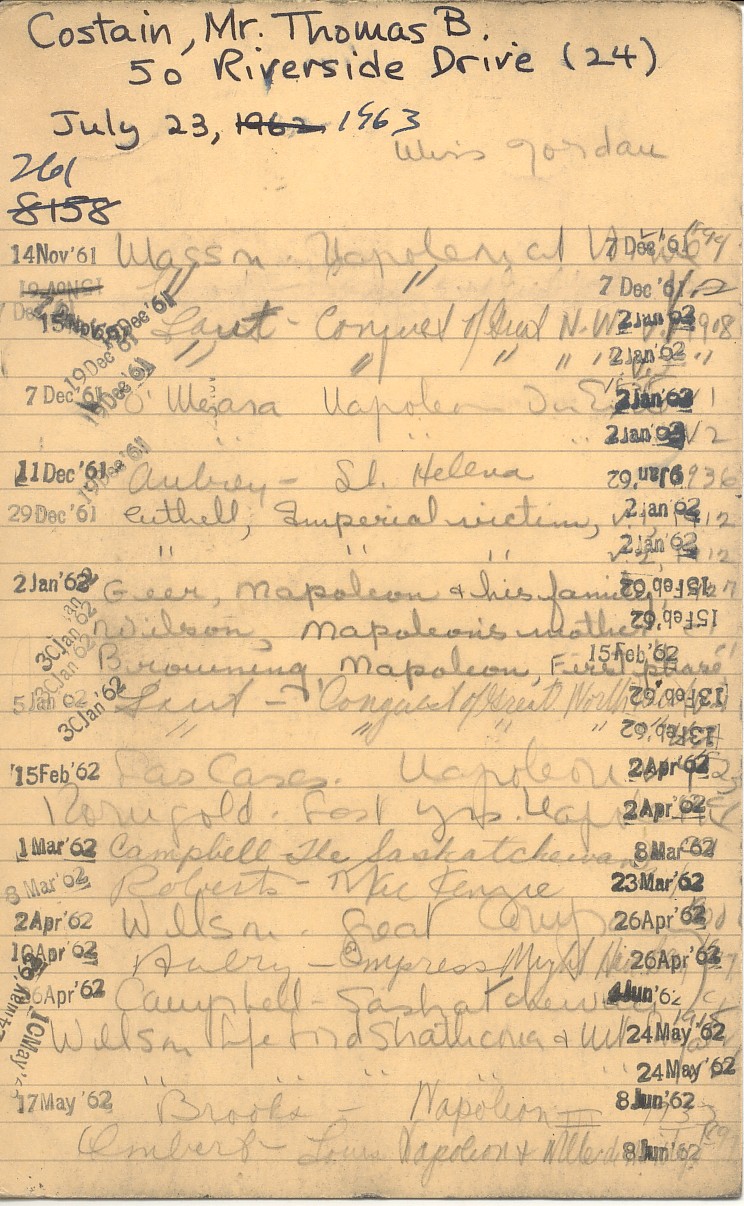 Costain, Mr. Thomas B.
50 Riverside Drive (24)
July 23, 1962 1963
Miss Jordan
261
8158
14Nov'61 Masson - Napoleon at 7 Dec'61
" " 7 Dec'61
15Nov'61 Laut - Conquest of Great N.W. 2Jan'62 1908
19Dec'61 " " " " 2Jan'62 "
7 Dec'61 O'Meara Napoleon In 2Jan'62 V1
" " 2Jan'62 V2
11Dec'61 Aubry - St. Helena 9Jan'62 1936
29Dec'61 Cuthell, Imperial victim, v.1, 2Jan'62 1912
" " " v.2, 2Jan'62 1912
2Jan'62 Geer, Napoleon & his family 15Feb'62
Wilson, Napoleon's mother 15Feb'62
Browning, Napoleon, First phase 15Feb'62
5Jan'62 Laut - Conquest of Great North 13Feb'62
30Jan'62 " " " 13Feb'62
15Feb'62 Las Cases. Napoleon 2Apr'62
Korngold. Last yrs. Napol 2Apr'62
1Mar'62 Campbell - The Saskatchewan 8Mar'62
8Mar'62 Roberts - MacKenzie 23Mar'62
2Apr'62 Willson. Great Company 26Apr'62
Aubry - Empress Might 26Apr'62
Campbell - Saskatchewan 4Jun'62
Willson Life Lord Strathcona & Mt 24May'62
" " " 24May'62
17May'62 Brooks - Napoleon III 8Jun'62
Imbert - Louis Napoleon & Mlle de 8Jun'62